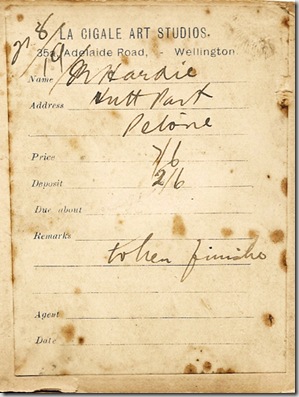 LA CIGALE ART STUDIOS.
35a, Adelaide Road, - Wellington
Name Hardie
Address Hutt Park
Petone
Price 7/6
Deposit 2/6
Due about
Remarks
when finishe
Agent
Date